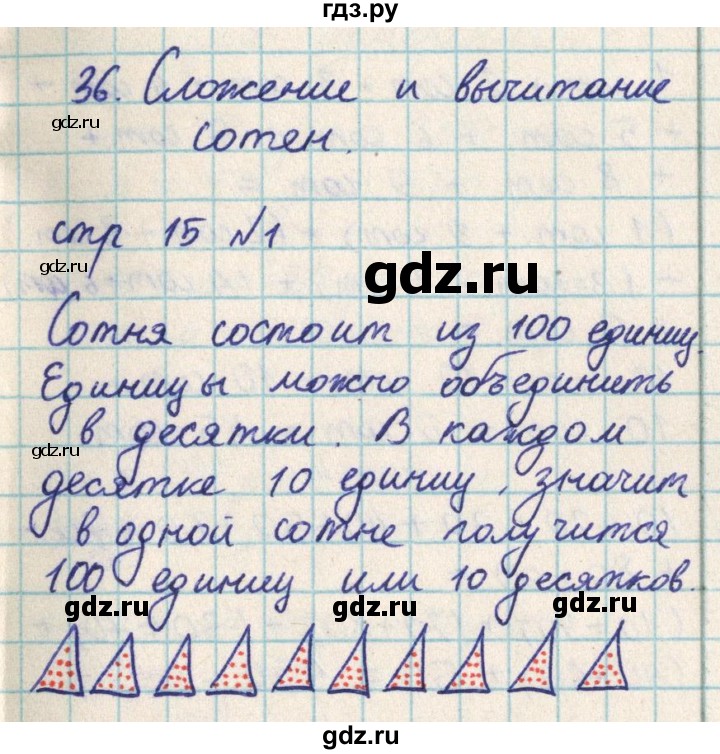 гдз.ру
36. Сложение и вычитание
gdz.ru
сотен.
стр 15 №1
gdz.ru
gdz.ru
Сотня состоит из 100 единиц.
Единицы можно объединить
в десятки. В каждом
gdz.ru
десятке 10 единиц, значит
в одной сотне получится
100 единиц или 10 десятков.
gdz.ru gdz.ru gdz.ru
gdz.ru